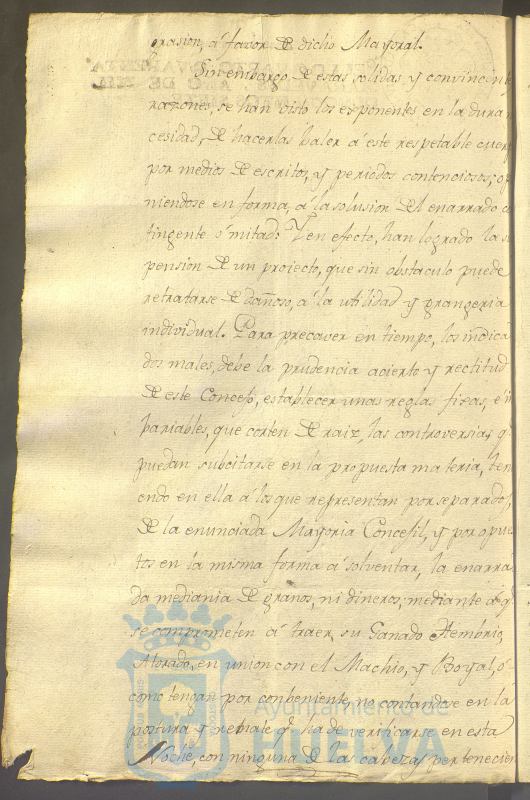 grasion, á favor de dicho Mayoral.
Sin embargo de estas solidas y convincente
razones, se han visto los exponentes en la dura
cesidad, de hacerlas baler á este respetable cuer
por medios de escritos, y periodos contenciosos; o
niendose en forma, á la solusion del enarrado co
tingente ó mitad: Y en efecto, han logrado la s
pension de un projecto, que sin obstaculo puede
retratarse de dañoso, á la utilidad y grangeria
individual. Para precaver en tiempo, los indica
dos males, debe la prudencia acierto y rectitud
de este Concejo, establecer unas reglas fixas, é in
bariables, que corten de raiz, las controversias q
puedan subcitarse en la propuesta materia, ten
endo en ella á los que representan por separados,
de la enunciada Mayoria Concejil, y por opues
tos en la misma forma á solventar, la enarra
da mediania de granos, ni dineros; mediante á q
se comprometen á traer, su Ganado Hembrio,
Atorado, en union con el Machio, y Boyal, ó
como tengan por conbeniente, no contandose en la
postura y remate q ha de verificarse en esta
Noche, con ninguna de las cabezas pertenecien
Ayuntamiento de
HUELVA